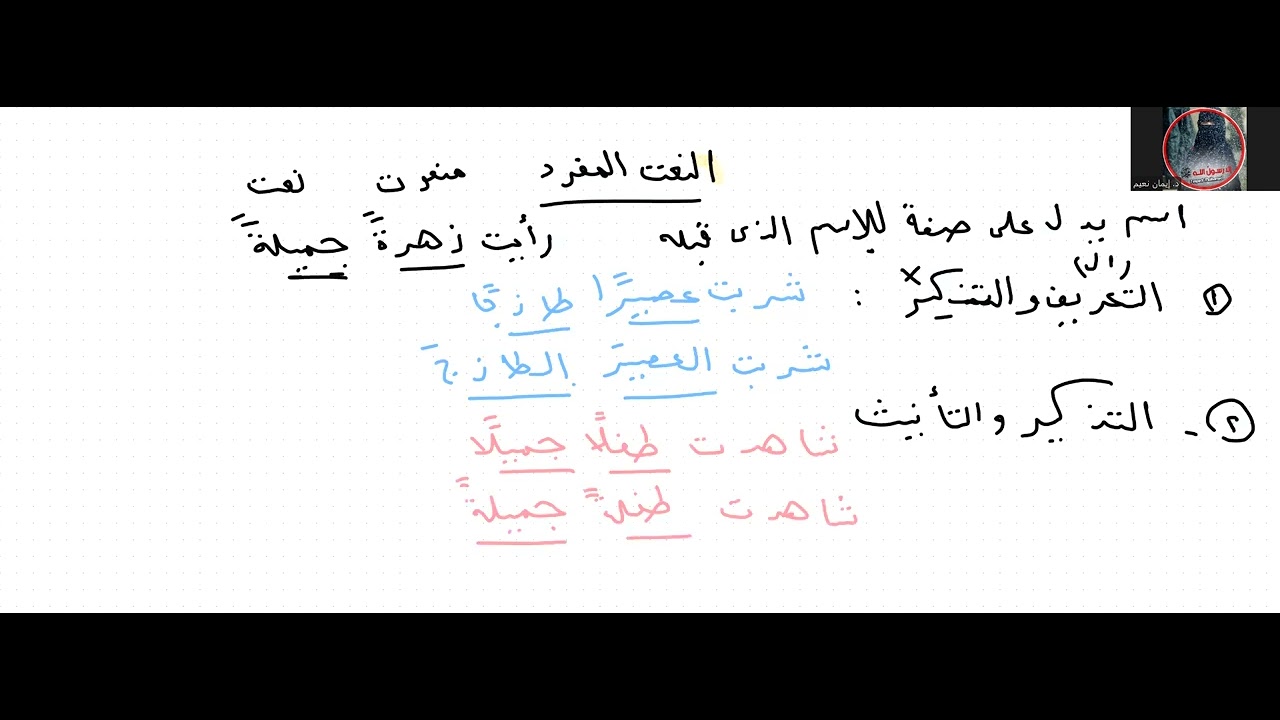 النعت المفرد منعوت نعت
اسم يدل على صفة للاسم الذى قبله رأيت زهرةً جميلةً
(ال)
١ التعريف والتنكير x : شربت عصيرًا طازجًا
شربت العصيرَ الطازجَ
٢- التذكير والتأنيث
شاهدت طفلًا جميلًا
شاهدت طفلةً جميلةً
إلا رسول الله
د. إيمان نعيم